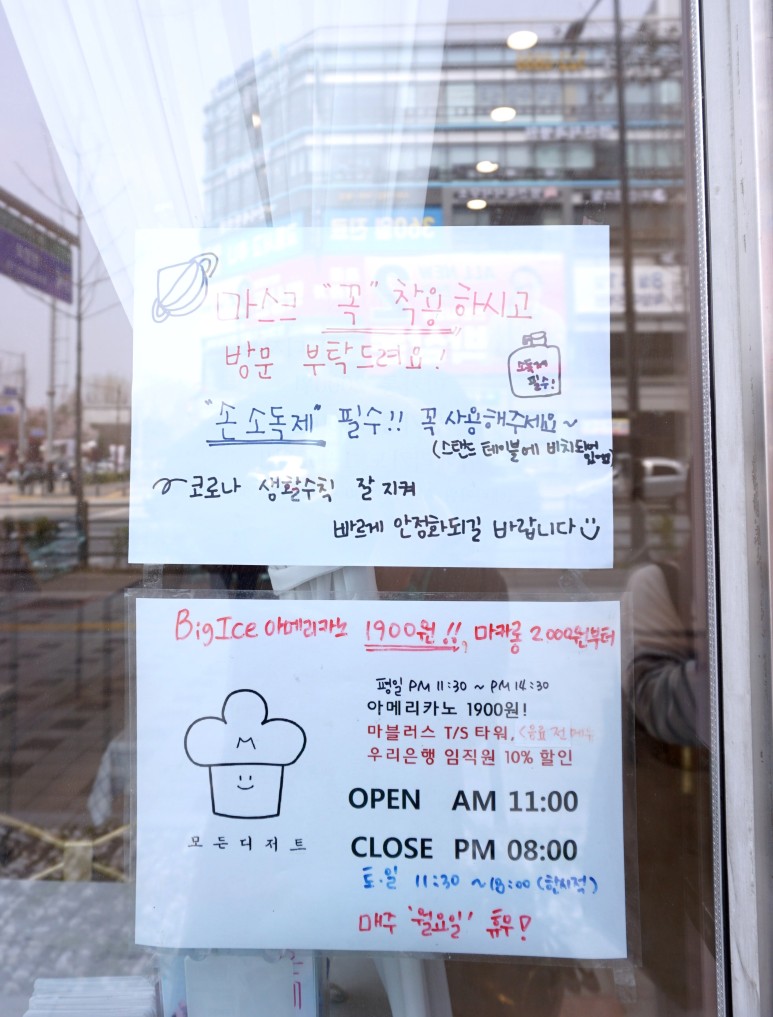 마스크 "꼭" 착용하시고
방문 부탁드려요!
소독제
필수!
"손 소독제" 필수!! 꼭 사용해주세요~
(스탠드 테이블에 비치되어
있어요)
코로나 생활수칙 잘 지켜
빠르게 안정화되길 바랍니다
BigIce 아메리카노 1900원!!, 마카롱 2000원부터
평일 PM 11:30 ~ PM 14:30
아메리카노 1900원!
마블러스 T/S 타워, (음료 전메뉴
우리은행 임직원 10% 할인
M
모든디저트
OPEN AM 11:00
CLOSE PM 08:00
토·일 11:30 ~18:00 (한시적)
매주 '월요일' 휴무!